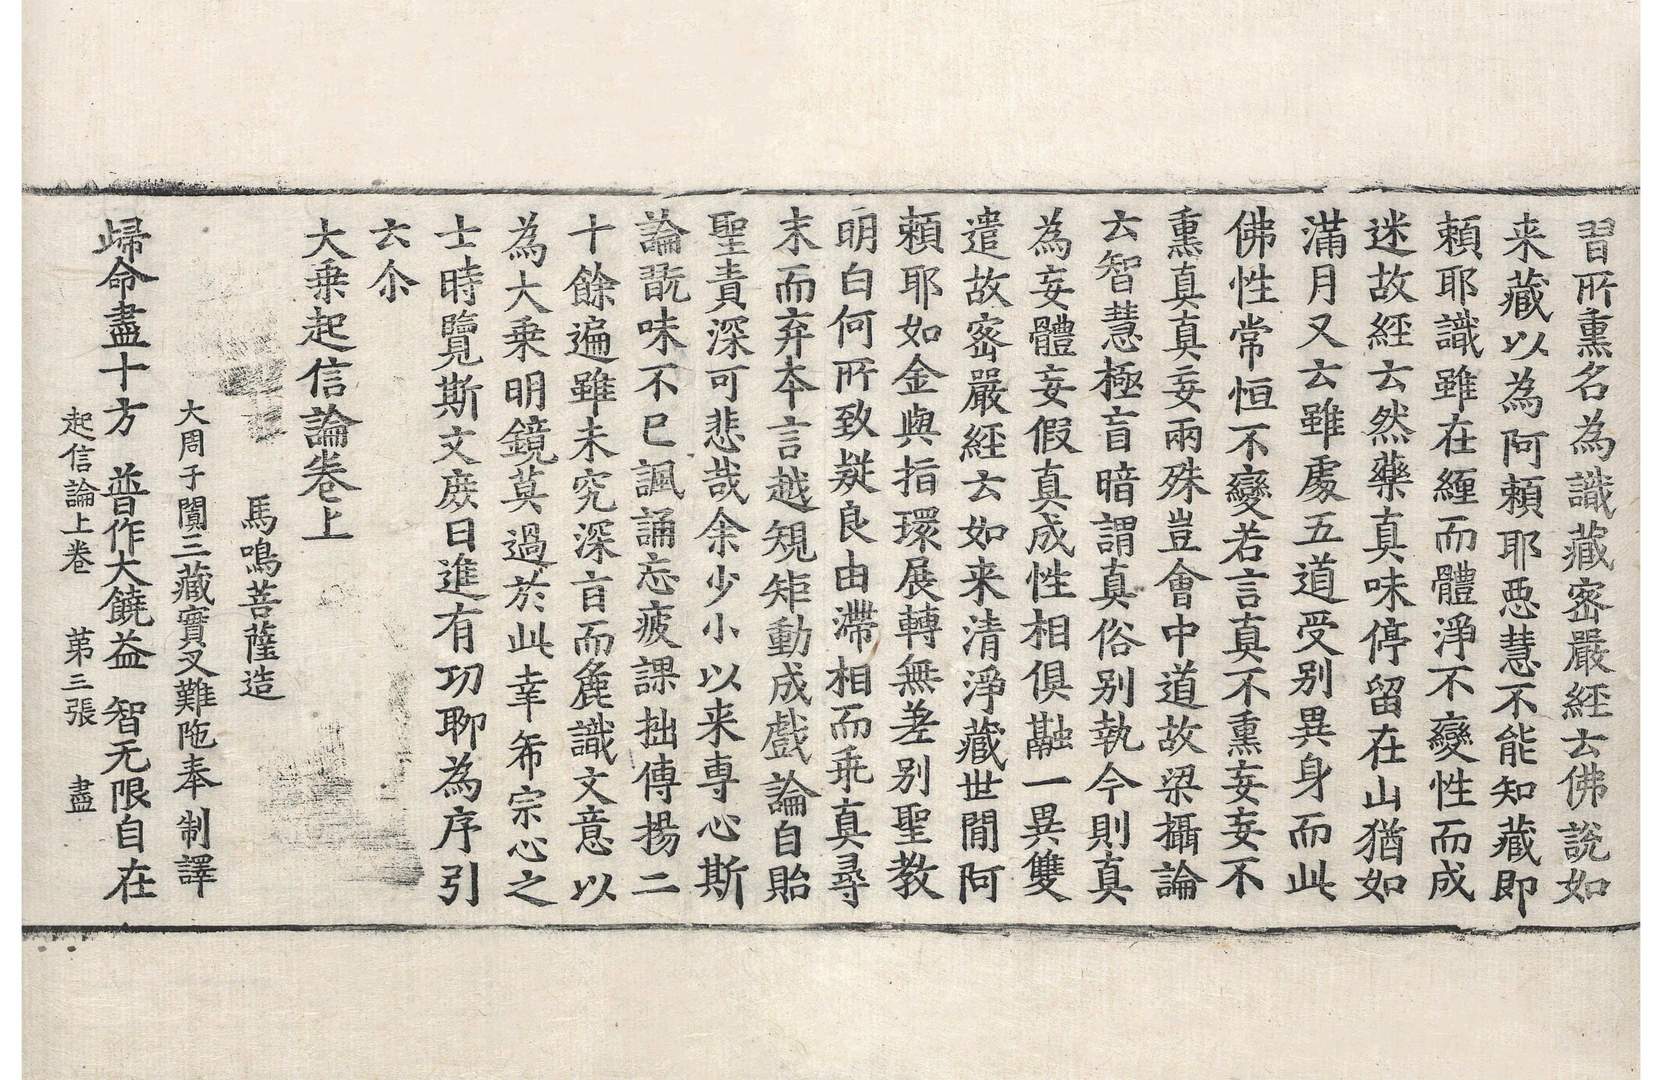 習所熏名為識藏密嚴經云佛說如
来藏以為阿賴耶惡慧不能知藏即
賴耶識雖在纏而體淨不變性而成
迷故經云然藥真味停留在山猶如
滿月又云雖處五道受别異身而此
佛性常恒不變若言真不熏妄妄不
熏真真妄兩殊豈會中道故梁攝論
云智慧極盲暗謂真俗别執今則真
為妄體妄假真成性相俱融一異雙
遣故密嚴經云如来清淨藏世間阿
賴耶如金與指環展轉無差别聖教
明白何所致疑良由滯相而乖真尋
末而弃本言越規矩動成戲論自貽
聖責深可悲哉余少小以来專心斯
論翫味不已諷誦忘疲課拙傳揚二
十餘遍雖未究深旨而麁識文意以
為大乗明鏡莫過於此幸希宗心之
士時覽斯文庶日進有功聊為序引
云尒
大乗起信論卷上
馬鳴菩薩造
大周于闐三藏實叉難陁奉 制譯
歸命盡十方 普作大饒益 智无限自在
起信論上卷 第三張 盡